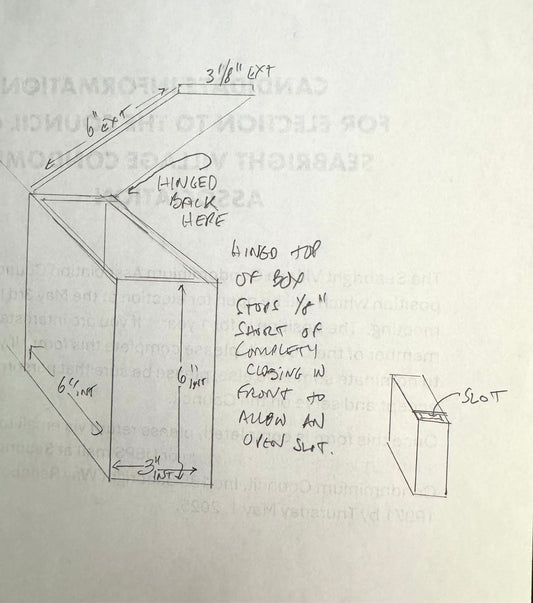 3 1/8" EXT
6" EXT
HINGED
BACK
HERE
HINGD TOP
OF BOX
STOPS 1/8"
SHORT OF
COMPLETY
CLOSING IN
FRONT TO
ALLOW AN
OPEN SLOT.
6" INT
6" INT
3" INT
SLOT